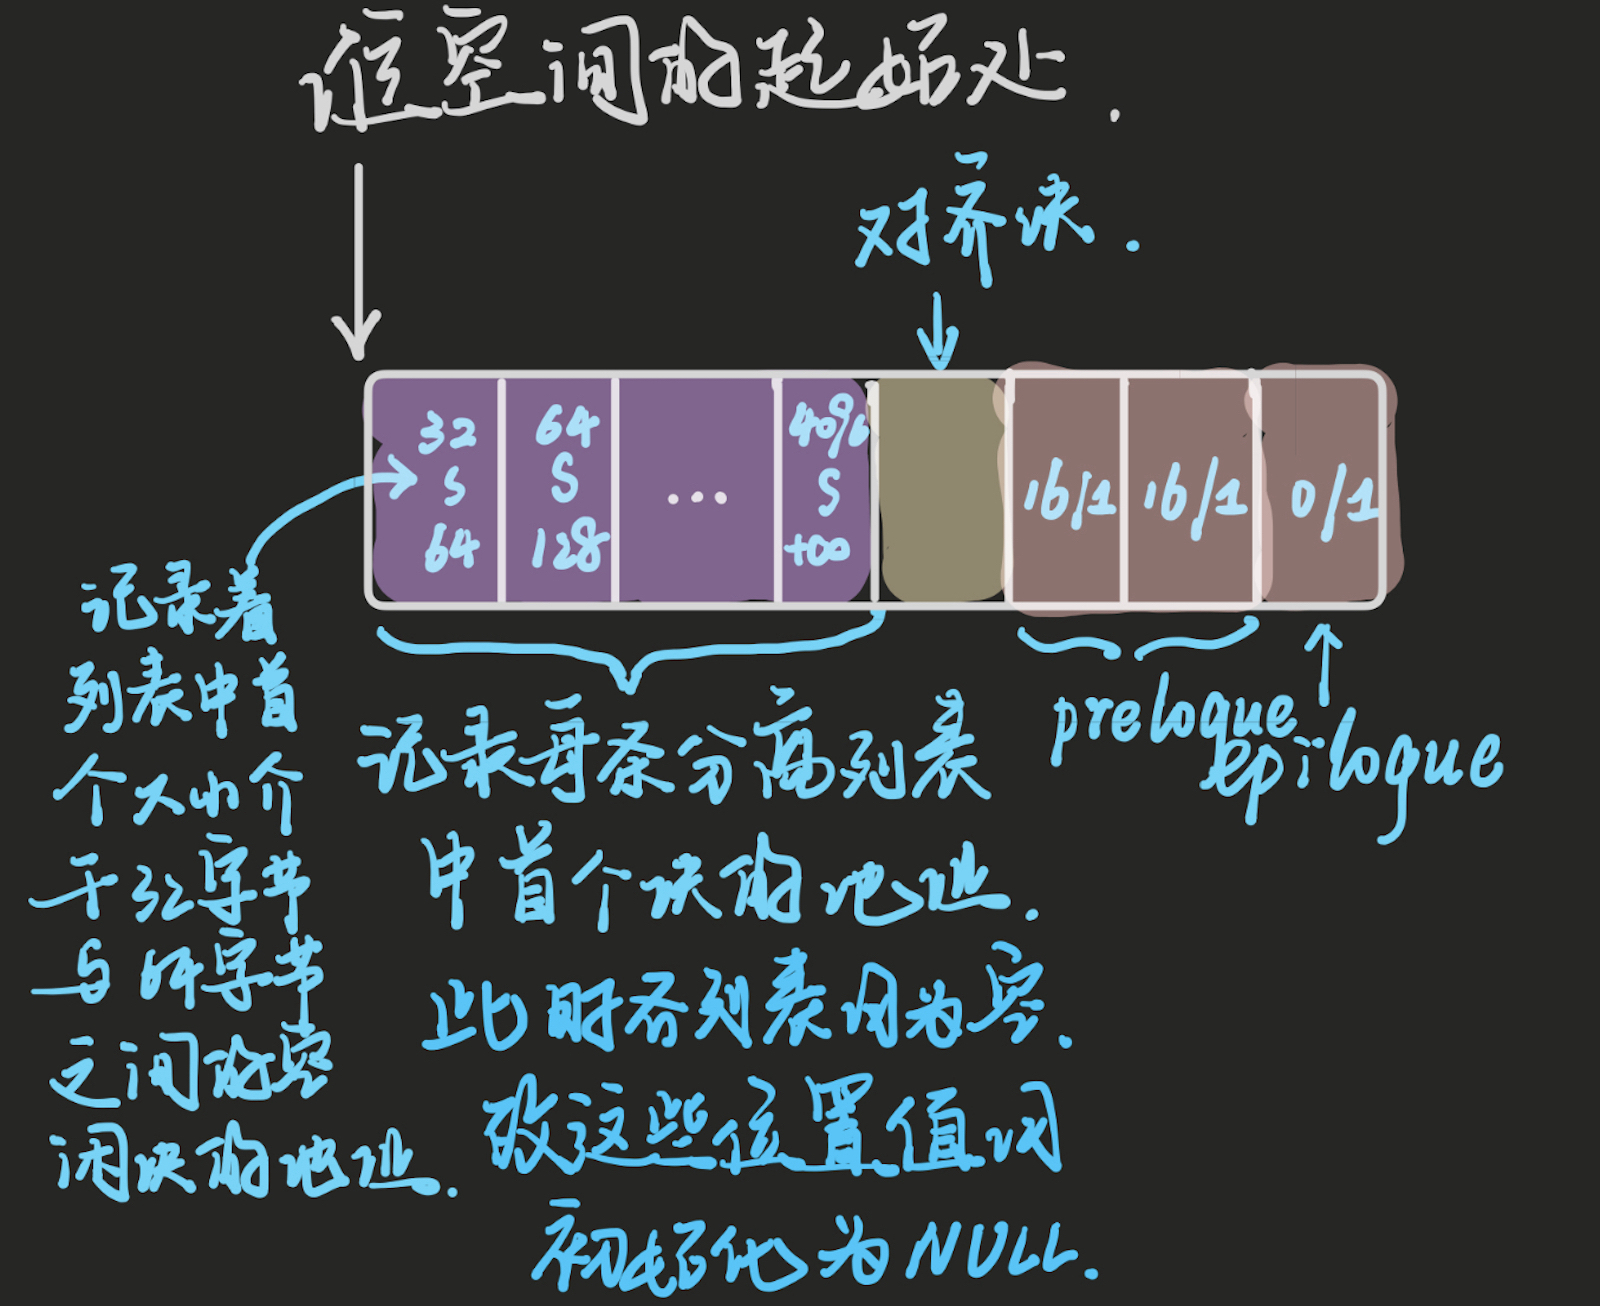 堆空间的起始处.
对齐块.
32
S
64
64
S
128
...
4096
S
+∞
16/1
16/1
0/1
记录着
列表中首
个大小介
于32字节
与64字节
之间的空
闲块的地址.
记录每条分离列表
中首个块的地址.
此时各列表均为空.
故这些位置值均
初始化为NULL.
prologue
epilogue